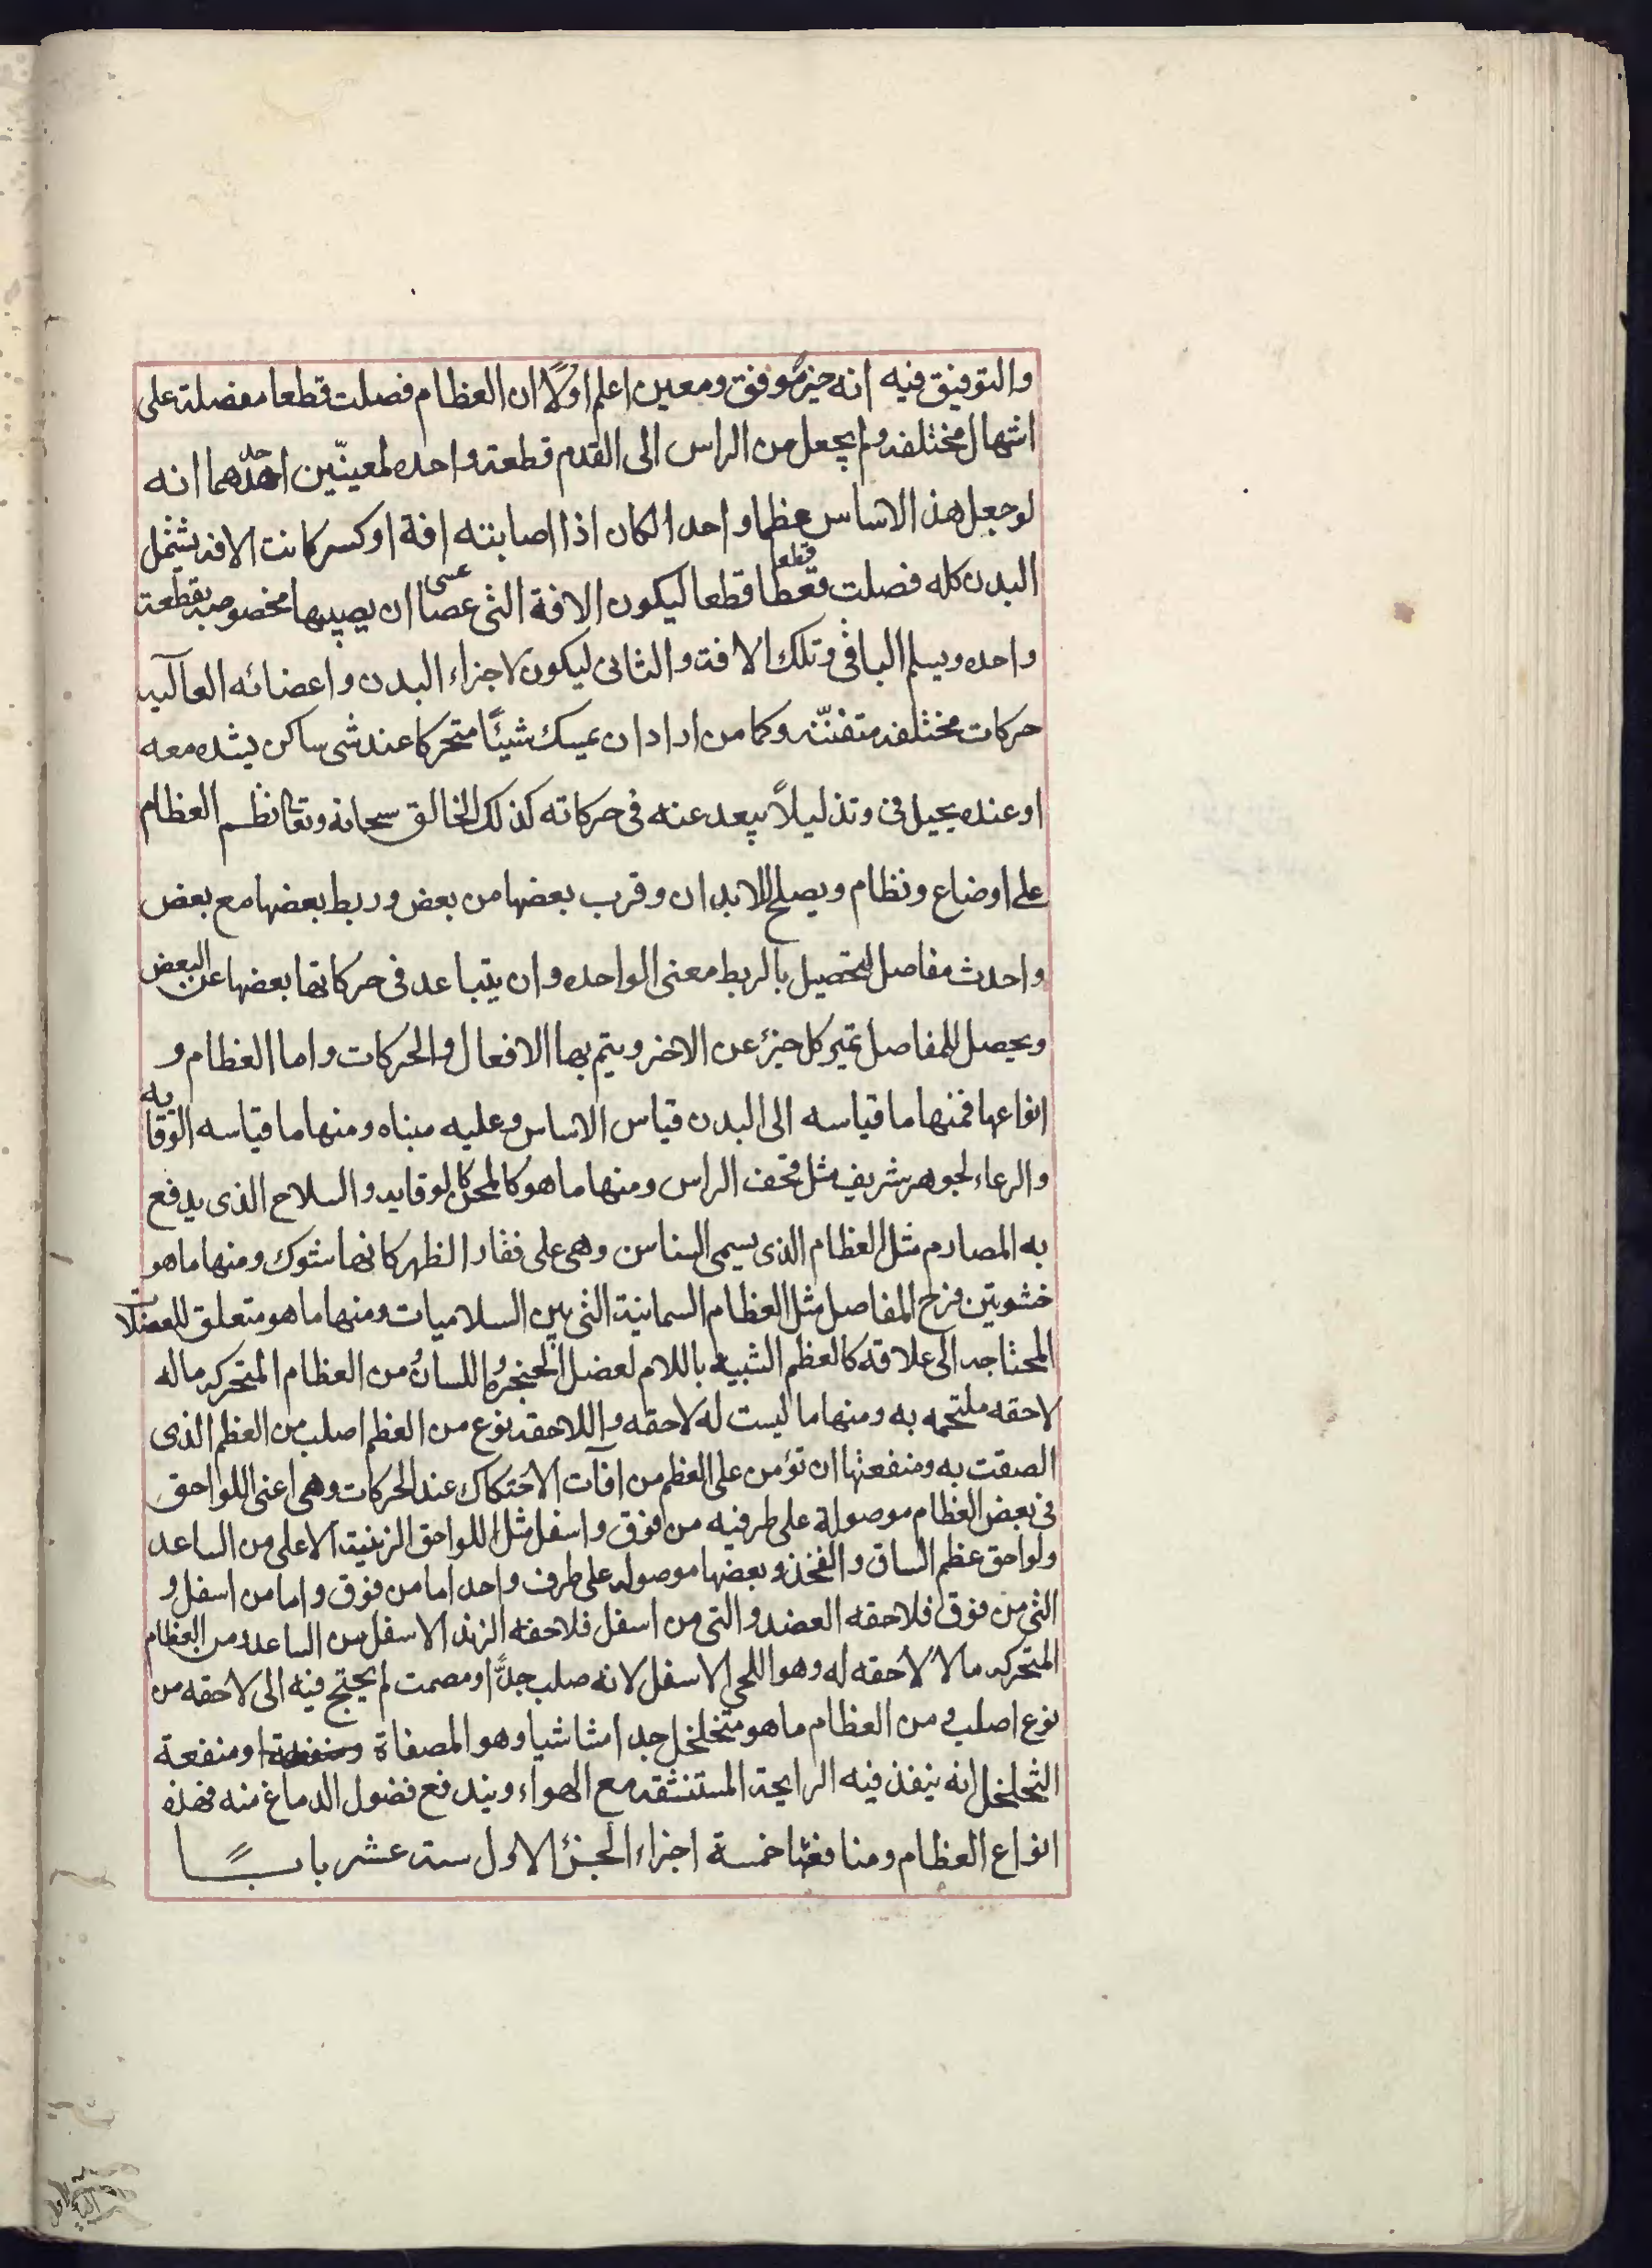 والتوفيق فيه انه خير موفق ومعين اعلم اولاً ان العظام فصلت قطعا مفصلة على
اشهال مختلفه ولم يجعل من الراس الى القدم قطعة واحده لمعينّين احدهما انه
لو جعل هذ الاساس عظما واحد الكان اذا اصابته افة او كسر كانت الافه يشتمل
البدن كله فصلت قعطا قطعا قطعا ليكون الافة التى عصا عسى ان يصيبها مخصوصه بقطعة
واحده ويسلم الباقى وتلك الافت والثانى ليكون لاجزاء البدن واعضائه العآليه
حركات مختلفه متفننّه وكما من اراد ان يمسك شيئًا متحركا عند شى ساكن يشده معه
او عنده بحيل فى وتذ ليلاً يبعد عنه فى حركاته كذلك الخالق سبحانه وتعا نظم العظام
على اوضاع ونظام ويصلح للابدان وقرب بعضها من بعض وربط بعضها مع بعض
واحدث مفاصل ليحصيل بالربط معنى الواحده وان يتباعد فى حركاتها بعضها عن البعض
ويحصل للمفاصل تميز كل جزئ عن الاخر ويتم بها الافعال والحركات واما العظام و
انواعها فمنها ما قياسه الى البدن قياس الاساس وعليه مبناه ومنها ما قياسه الوقايه
والرعاء لجوهر شريف مثل قحف الراس ومنها ما هو كالمحن كالوقايه والسلاح الذى يدفع
به المصادم مثل العظام الذى يسمى السناسن وهى على فقار الظهر كانها شوك ومنها ما هو
خشوبتين فرج المفاصل مثل العظام السمانية التى بين السلاميات ومنها ما هو متعلق للعضلات
المحتاجه الى علاقه كالعظم الشبيه باللام لعضل الحنجره واللسان ومن العظام المتحركه ماله
لاحقه ملتحمه به ومنها ما ليست له لاحقه واللاحقه نوع من العظم اصلب من العظم الذى
الصقت به ومنفعتها ان تؤمن على العظم من افآت الاحتكاك عند الحركات وهى اعنى اللواحق
فى بعض العظام موصولة على طرفيه من افوق واسفل مثل اللواحق الزنيتة الاعلى من الساعد
ولواحق عظم الساق والفخذ وبعضها موصوله على طرف واحد اما من فوق واما من اسفل و
التى من فوق فلاحقه العضد والتى من اسفل فلاحقه الزند الاسفل من الساعد ومن العظام
المتحركه ما لا لاحقه له وهو اللحى الاسفل لانه صلب جدًّا ومصمت لم يحتج فيه الى لاحقه من
نوع اصلب ومن العظام ما هو متخلخل جدا مشاشيا وهو المصفاة ومنفعة
التخلخل انه ينفذ فيه الرايحة المستنشقه مع الهواء ويندفع فضول الدماغ منه فهذه
انواع العظام ومنافعها خمسة اجزاء الجزئ الاول ستة عشر بابًا